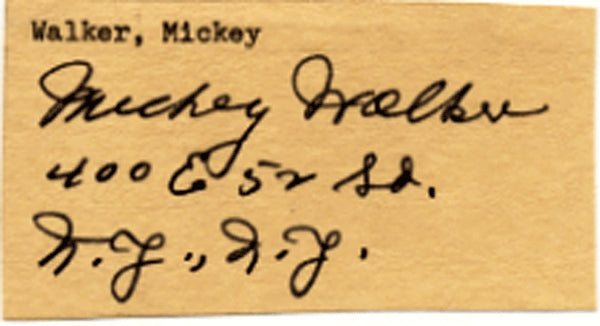 Walker, Mickey
Mickey Walker
400 E 52 St.
N.Y., N.Y.